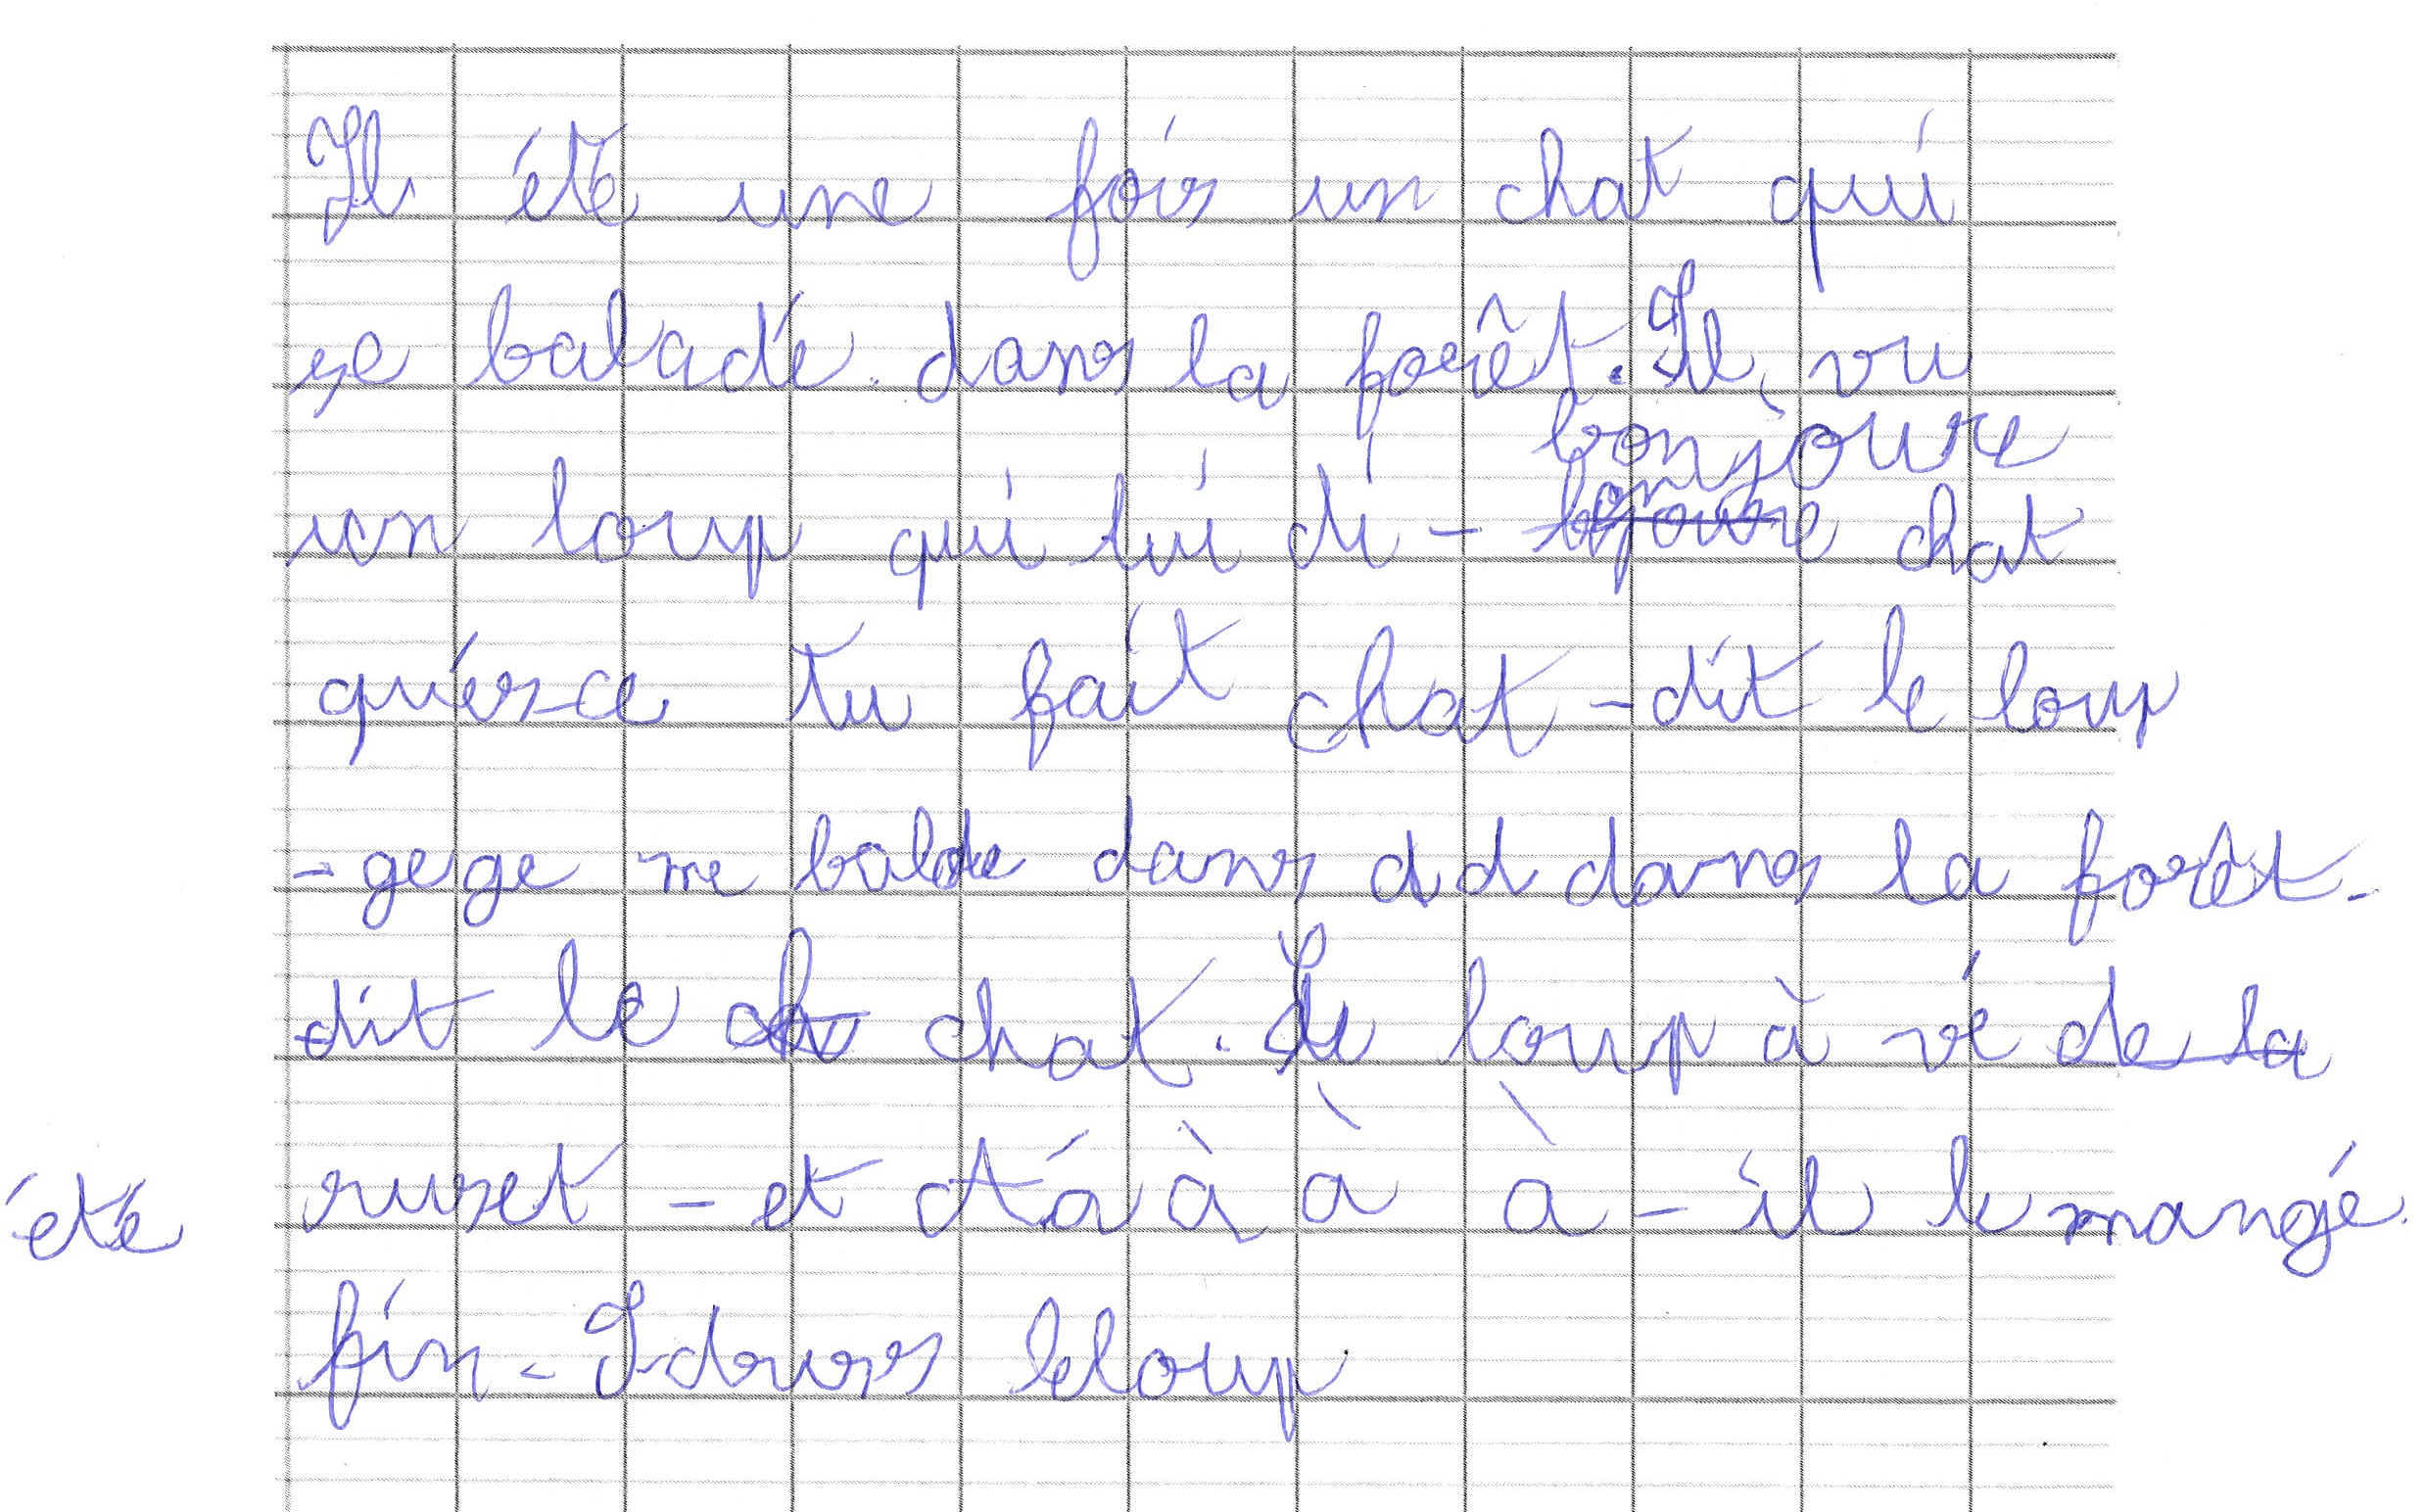 Il été une fois un chat qui
se baladé dans la forêt. Il vu
bonjoure
un loup qui lui di - bonjoure chat
qués-ce tu fait chat - dit le loup
- gege me balde dans d d dans la forêt -
dit le ch chat. Le loup à vé de la
été ruset - et tá à à à - il le mangé.
fin - I dours leloup